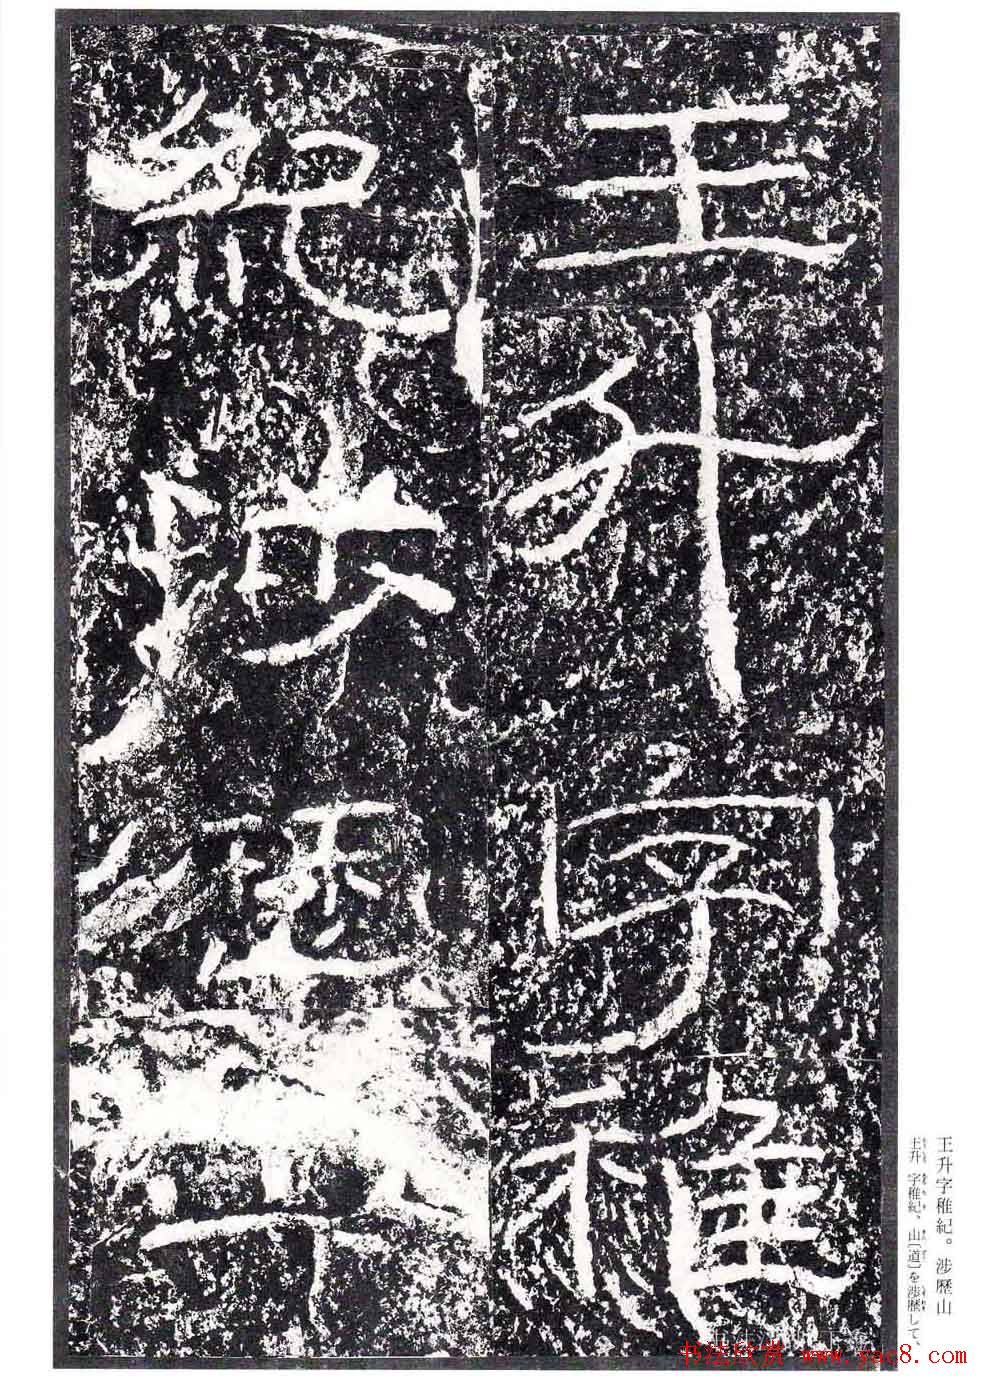 王升字稚
紀涉歷山
王升字稚紀。涉歷山
王升 字稚紀、山〔道〕を涉歷して、
书法欣赏 www.yac8.com